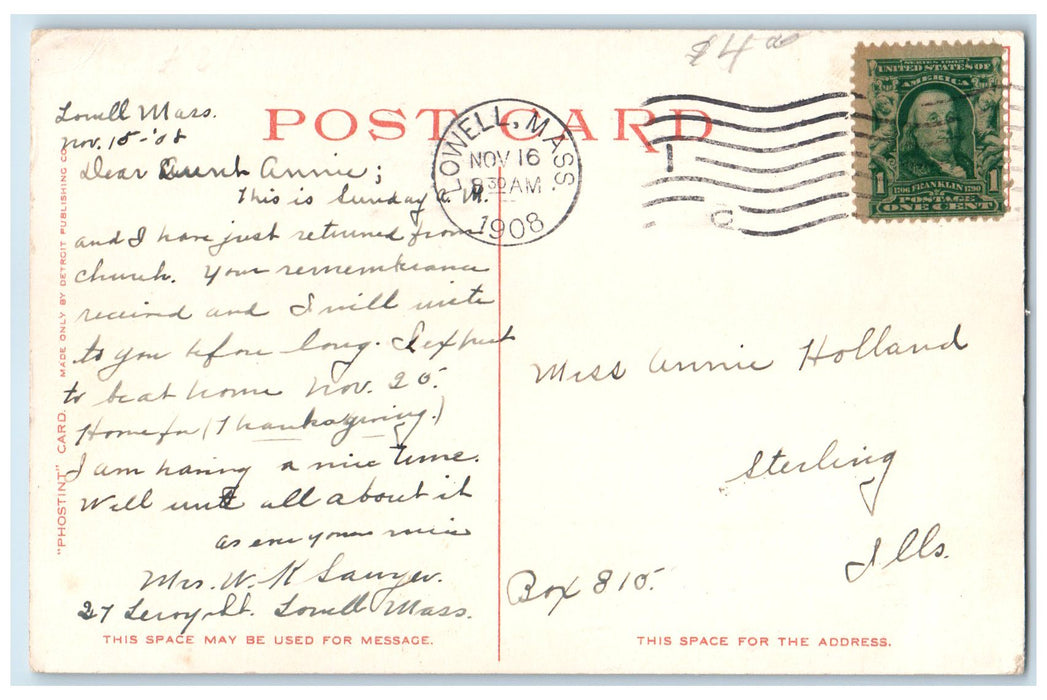 $4 00
POST CARD
LOWELL, MASS.
NOV 16
8 30 AM
1908
SERIES 1902
UNITED STATES OF
AMERICA
1 1706 FRANKLIN 1790 1
POSTAGE
ONE CENT
Lowell Mass.
Nov. 15-'08
Dear Aunt Annie;
This is Sunday A. M.
and I have just returned from
church. Your remembrance
received and I will write
to you before long. I expect
to be at home Nov. 25.
Home for (Thanksgiving.)
I am having a nice time.
Will write all about it
as ever your niece
Mrs. W. K Sawyer.
27 Leroy St. Lowell Mass.
THIS SPACE MAY BE USED FOR MESSAGE.
"PHOSTINT" CARD. MADE ONLY BY DETROIT PUBLISHING CO.
Miss Annie Holland
Sterling
Ills.
Box 815.
THIS SPACE FOR THE ADDRESS.